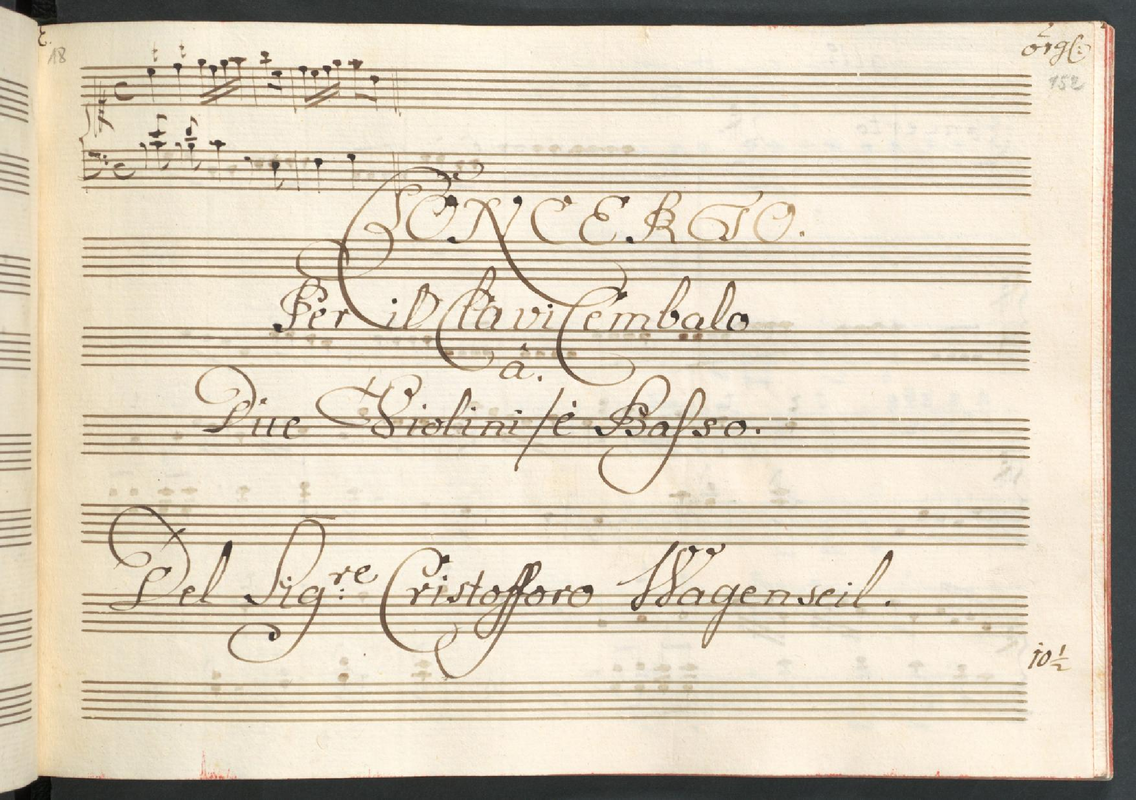 18
152
CONCERTO.
Per il Clavi Cembalo
â.
Due Violini / è Basso.
Del Sig:re Cristofforo Wagenseil.
10 1/2